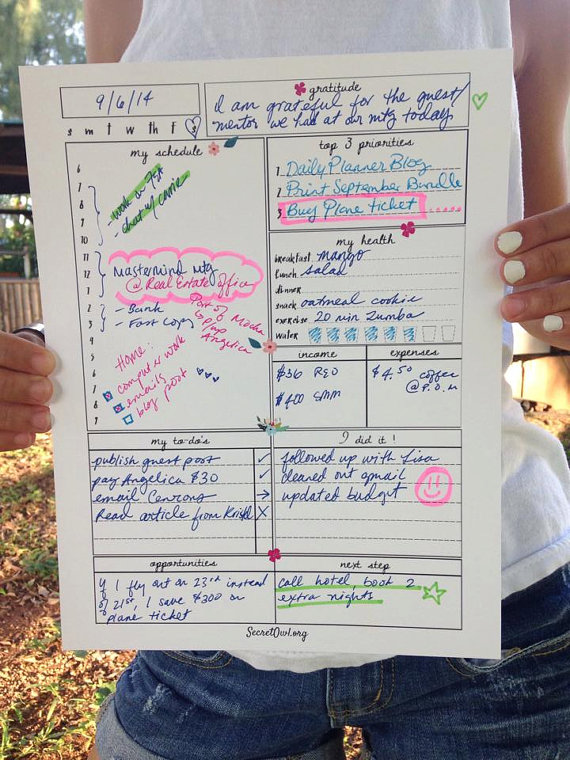 9/6/14
s m t w th f s
gratitude
I am grateful for the guest/
mentor we had at our mtg today
my schedule
6
7
8
9
10
- work on 1st
chat w/ Carrie
11
12
1
Mastermind mtg
@ Real Estate office
2
3
- Bank
- Fast Copy
4
5
6
7
8
Home:
computer work
emails
blog post
top 3 priorities
1. Daily Planner Blog
2. Print September Bundle
3. Buy Plane ticket
my health
breakfast mango
lunch salad
dinner
snack oatmeal cookie
exercise 20 min Zumba
water
income
$36 REO
$400 SMM
expenses
$4.50 coffee
@ P.O.M
my to-do's
publish guest post
pay Angelica $30
email Cenrons
Read article from Kristel
I did it!
followed up with Lisa
cleaned out gmail
updated budget
opportunities
If I fly out on 23rd instead
of 21st, I save $300 on
plane ticket
next step
call hotel, book 2
extra nights
SecretOwl.org